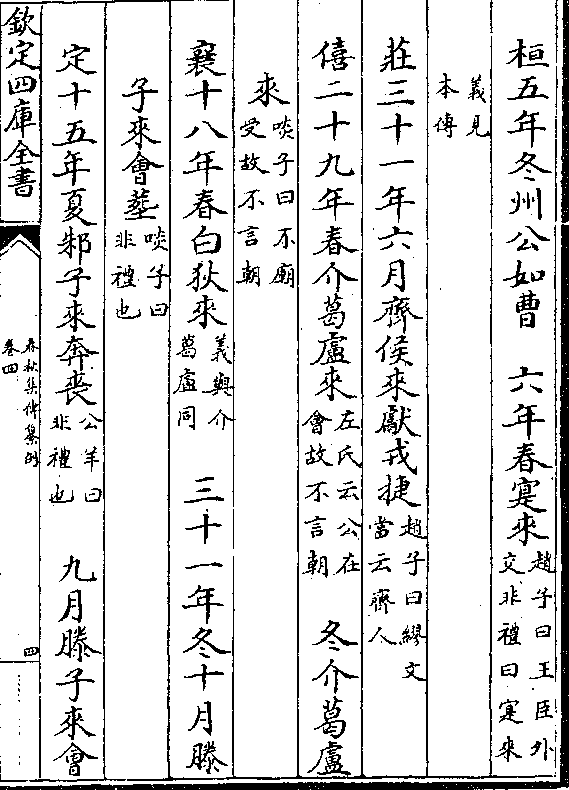 桓五年冬州公如曹　六年春寔來趙子曰王臣外
交非禮曰寔來
義見
本傳
莊三十一年六月齊侯來獻戎捷趙子曰繆文
當云齊人
僖二十九年春介葛盧來左氏云公在
會故不言朝　冬介葛盧
來啖子曰不廟
受故不言朝
襄十八年春白狄來義與介
葛盧同　三十一年冬十月滕
子來會葬啖子曰
非禮也
定十五年夏邾子來奔喪公羊曰
非禮也　九月滕子來會
欽定四庫全書
春秋集傳纂例
卷四
四